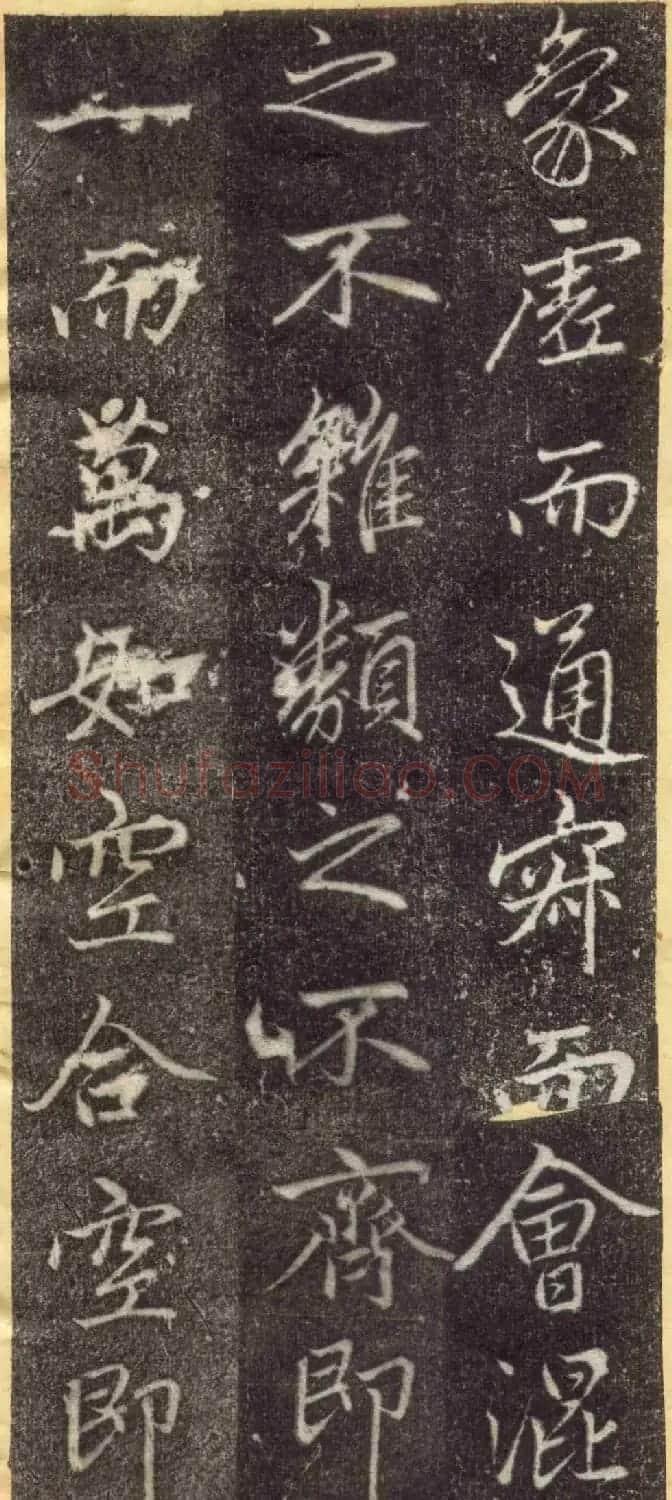 象虛而通寂而會混
之不雜類之不齊即
一而萬如空合空即
Shufaziliao.COM